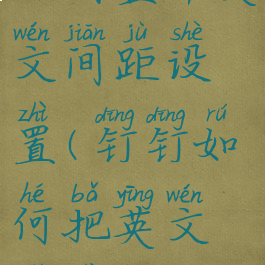 wén jiān jù shè
文间距设
zhì dīng dīng rú
置(钉钉如
hé bǎ yīng wén
何把英文